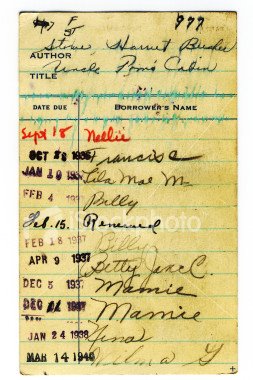 F 977
AUTHOR Stowe, Harriet Beecher
TITLE Uncle Tom's Cabin
DATE DUE BORROWER'S NAME
Sept 18 Nellie
OCT 28 1935 Francis
JAN 10 193 Lila Mae M.
FEB 4 193 Billy
Feb. 15. Renewed
FEB 18 1937 Billy
APR 9 1937 Betty Jane C.
DEC 5 193 Mamie
DEC 193 Mamie
JAN 24 1938 Tina
MAR 14 1940 Wilma G